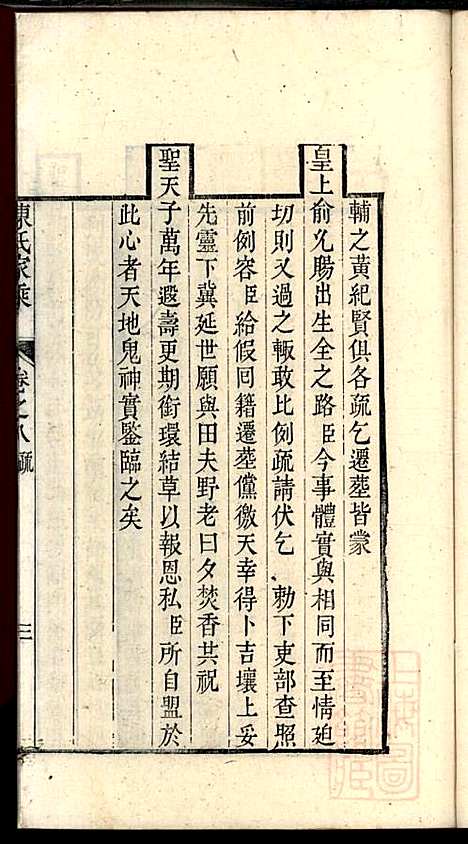 輔之黃紀賢俱各疏乞遷塟皆蒙
皇上俞允賜出生全之路臣今事體實與相同而至情廹
切則又過之輙敢比例疏請伏乞　勅下吏部查照
前例容臣給假囘籍遷塟儻徼天幸得卜吉壤上妥
先靈下冀延世願與田夫野老日夕焚香共祝
聖天子萬年遐壽更期銜環結草以報恩私臣所自盟於
此心者天地鬼神實鑒臨之矣
陳氏家乘　卷之八　疏　三